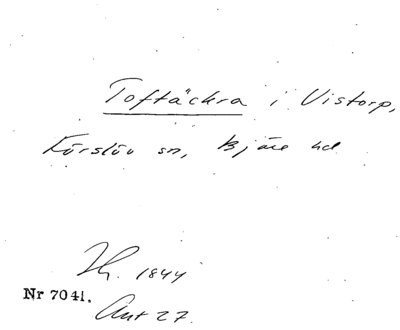 Toftäckra i Vistorp,
Förslöv sn, Bjäre hd
Th. 1844
Nr 7041.
Ant 27.